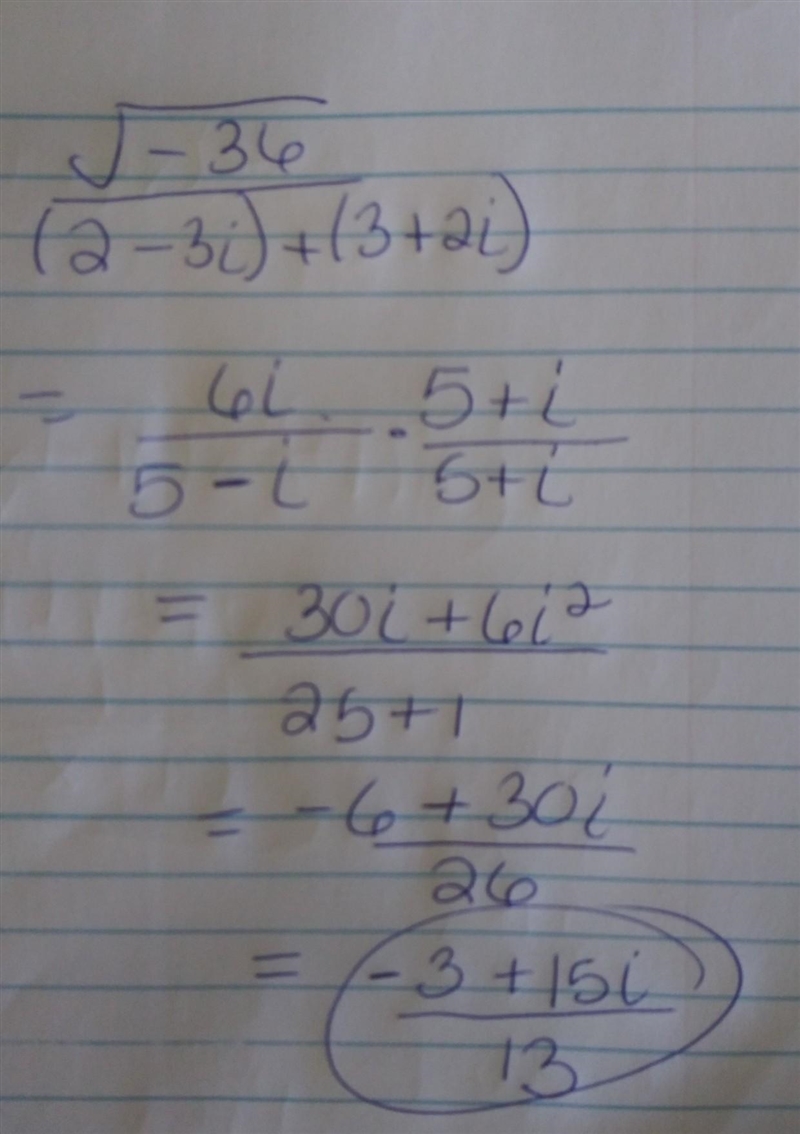 √-36
(2-3i)+(3+2i)
= 6i/5-i · 5+i/5+i
= 30i+6i²
25+1
= -6+30i
26
= -3+15i
13